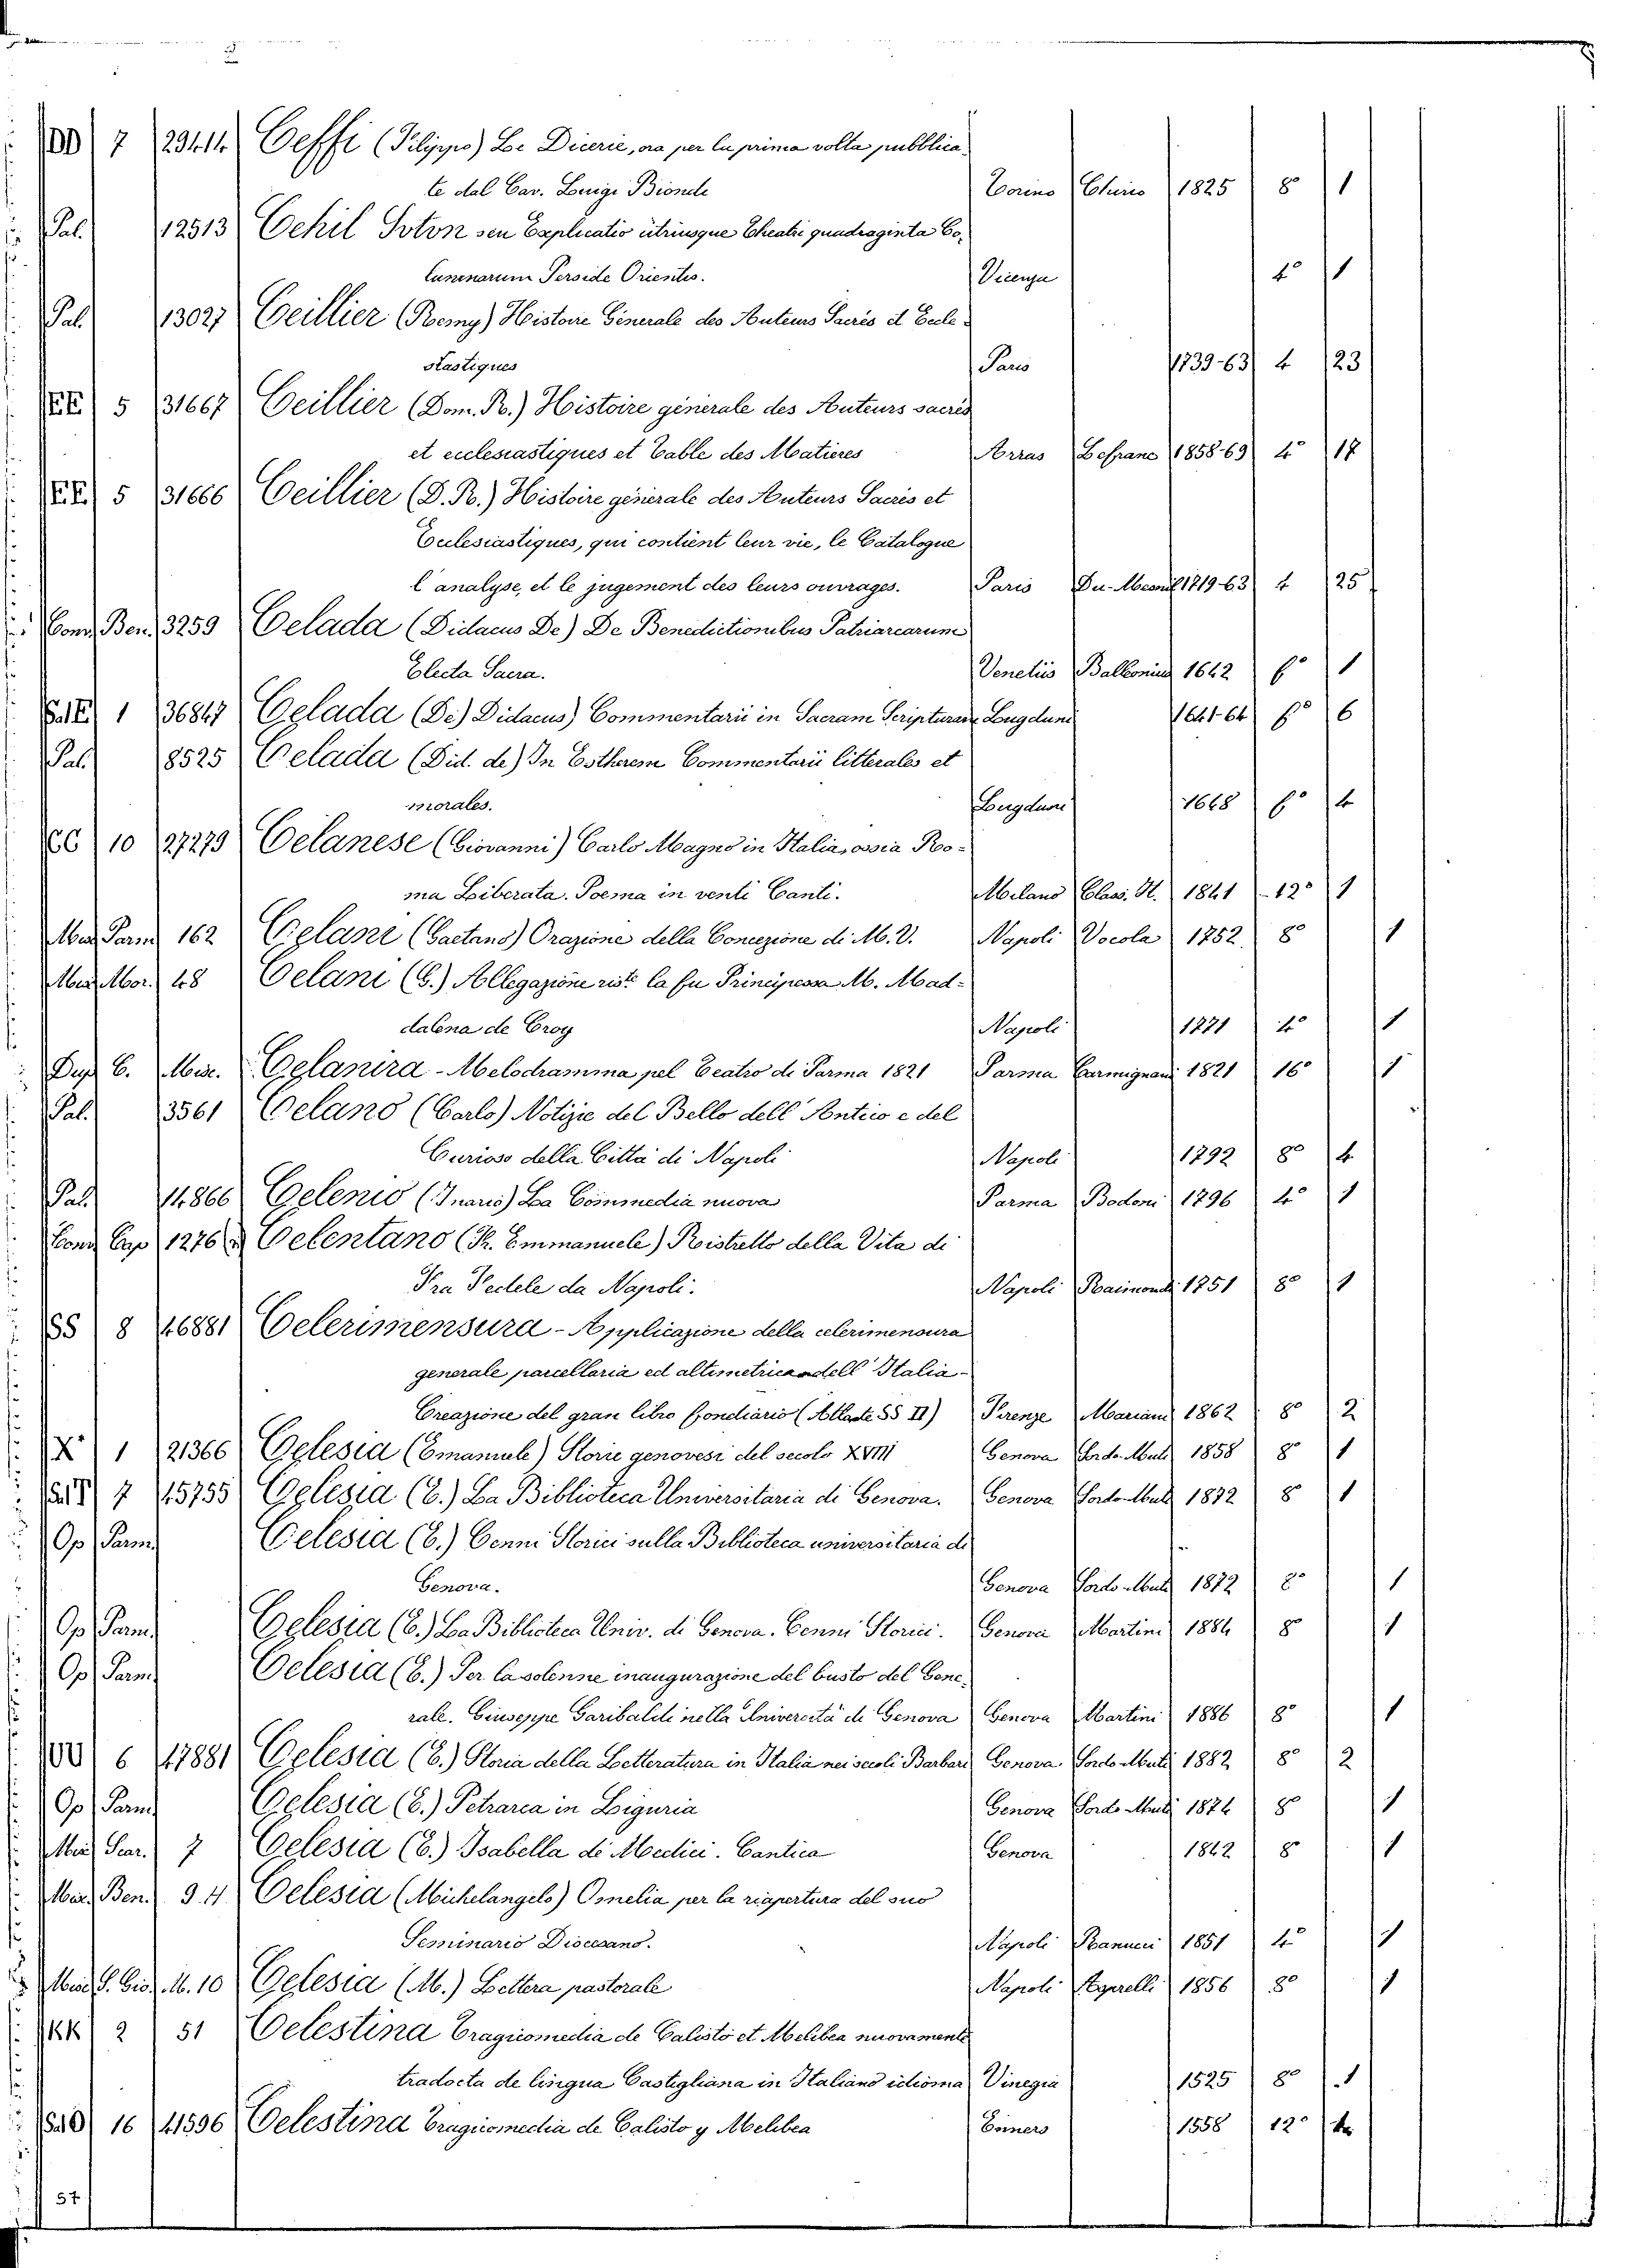 DD 7 29414 Ceffi (Filippo) Le Dicerie, ora per la prima volta pubblica
te dal Cav. Luigi Biondi Torino Chirio 1825 8° 1
Pal. 12513 Cehil Soton seu Explicatio utriusque Theatri quadraginta Co-
lumnarum Perside Orientis. Vicenza 4° 1
Pal. 13027 Ceillier (Remy) Histoire Generale des Auteurs Sacrés et Eccle-
siastiques Paris 1739-63 4 23
EE 5 31667 Ceillier (Dom. R.) Histoire génerale des Auteurs sacrés
et ecclesiastiques et Table des Matieres Arras Lefranc 1858-69 4° 17
EE 5 31666 Ceillier (D. R.) Histoire génerale des Auteurs Sacrés et
Ecclesiastiques, qui contient leur vie, le Catalogue
l'analyse, et le jugement des leurs ouvrages. Paris 4 25
Conv. Ben. 3259 Celada (Didacus De) De Benedictionibus Patriarcarum
Electa Sacra. Venetiis Balleonius 1642 f° 1
1 36847 Celada (De) Didacus) Commentarii in Sacram Scripturam Lugduni 1641-64 f° 6
Pal. 8525 Celada (Did. de) In Estherem Commentarii litterales et
morales. Lugduni 1668 f° 4
CC 10 27279 Celanese (Giovanni) Carlo Magno in Italia, ossia Ro-
ma Liberata. Poema in venti Canti. Milano Class. It. 1841 12° 1
Mis. Parm 162 Celani (Gaetano) Orazione della Concezione di M. V. Napoli Vocola 1752 8° 1
Mis. Mor. 48 Celani (G.) Allegazione la fu Principessa M. Mad-
dalena de Croy Napoli 1771 4° 1
Dup C. Misc. Celanira - Melodramma pel Teatro di Parma 1821 Parma Carmignani 1821 16° 1
Pal. 3561 Celano (Carlo) Notizie del Bello dell'Antico e del
Curioso della Città di Napoli Napoli 1792 8° 4
Pal. 14866 Celenio (Inarco) La Commedia nuova Parma Bodoni 1796 4° 1
Conv Cap 1276 Celentano (P. Emmanuele) Ristretto della Vita di
Fra Fedele da Napoli. Napoli Raimondi 1751 8° 1
SS 8 46881 Celerimensura - Applicazione della celerimensura
generale parcellaria ed altimetrica dell'Italia -
Creazione del gran libro fondiario (Atlante SS II) Firenze Mariani 1862 8° 2
X 1 21366 Celesia (Emanuele) Storie genovesi del secolo XVIII Genova Sordo-Muti 1858 8° 1
7 45755 Celesia (E.) La Biblioteca Universitaria di Genova. Genova Sordo-Muti 1872 8 1
Op Parm. Celesia (E.) Cenni Storici sulla Biblioteca universitaria di
Genova. Genova Sordo-Muti 1872 8° 1
Op Parm. Celesia (E.) La Biblioteca Univ. di Genova. Cenni Storici. Genova Martini 1884 8° 1
Op Parm. Celesia (E.) Per la solenne inaugurazione del busto del Gene-
rale. Giuseppe Garibaldi nella Univercità di Genova Genova Martini 1886 8° 1
6 47881 Celesia (E.) Storia della Letteratura in Italia nei secoli Barbari Genova Sordo-Muti 1882 8° 2
Op Parm. Celesia (E.) Petrarca in Liguria Genova Sordo-Muti 1874 8° 1
Mis. Scar. 7 Celesia (E.) Isabella di Medici. Cantica Genova 1842 8° 1
Mis. Ben. 9.4 Celesia (Michelangelo) Omelia per la riapertura del suo
Seminario Diocesano. Napoli Ranucci 1851 4° 1
Mis. S. Gio. M. 10 Celesia (M.) Lettera pastorale Napoli 1856 8° 1
KK 2 51 Celestina Tragicomedia de Calisto et Melibea nuovamente
tradocta de lingua Castigliana in Italiano idioma Vinegia 1525 8° 1
16 41596 Celestina Tragicomedia de Calisto y Melibea 1558 12°
57